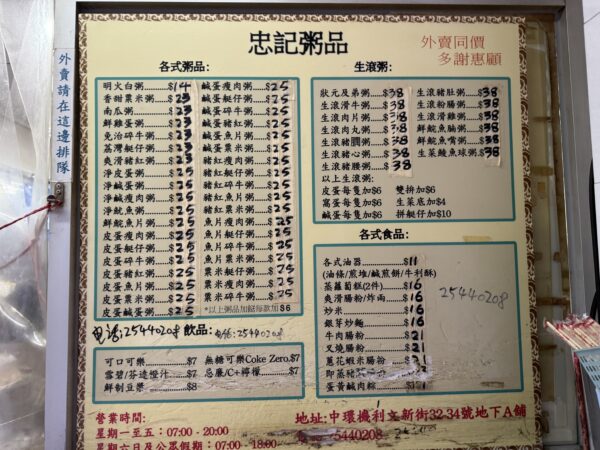 忠記粥品
外賣同價
多謝惠顧
外賣請在這邊排隊
各式粥品:
明火白粥........$14
香甜粟米粥...$23
南瓜粥............$23
鮮雞蛋粥........$23
免治碎牛粥...$23
荔灣艇仔粥...$23
爽滑豬紅粥...$23
淨皮蛋粥........$25
淨鹹蛋粥........$25
淨鹹瘦肉粥...$25
淨魷魚粥........$25
鮮鯇魚片粥...$25
皮蛋瘦肉粥...$25
皮蛋艇仔粥...$25
皮蛋碎牛粥...$25
皮蛋豬紅粥...$25
皮蛋魚片粥...$25
皮蛋粟米粥...$25
皮蛋鹹蛋粥...$25
鹹蛋瘦肉粥....$25
鹹蛋艇仔粥....$25
鹹蛋碎牛粥....$25
鹹蛋豬紅粥....$25
鹹蛋魚片粥....$25
鹹蛋粟米粥....$25
豬紅瘦肉粥....$25
豬紅艇仔粥....$25
豬紅碎牛粥....$25
豬紅魚片粥....$25
豬紅粟米粥....$25
魚片瘦肉粥....$25
魚片碎牛粥....$25
魚片艇仔粥....$25
魚片粟米粥....$25
粟米瘦肉粥....$25
粟米艇仔粥....$25
粟米碎牛粥....$25
*以上粥品加餸每款加$6
生滾粥:
狀元及弟粥....$38
生滾滑牛粥....$38
生滾肉片粥....$38
生滾肉丸粥....$38
生滾豬膶粥....$38
生滾豬心粥....$38
生滾豬腰粥....$38
生滾豬肚粥....$38
生滾粉腸粥....$38
生滾滑雞粥....$38
鮮鯇魚腩粥....$38
鮮鯇魚嘴粥....$38
生菜鯪魚球粥.$38
以上生滾粥:
皮蛋每隻加$6 雙拚加$6
窩蛋每隻加$6 生菜底加$4
鹹蛋每隻加$6 拼艇仔加$10
各式食品:
各式油器................$11
(油條/煎堆/鹹煎餅/牛利酥)
蒸蘿蔔糕(2件)........$16
爽滑腸粉/炸兩........$16
炒米........................$16
銀芽炒麵................$16
牛肉腸粉................$21
叉燒腸粉................$21
蔥花蝦米腸粉........$21
即蒸
蛋黃鹹肉粽............$21
25440208
電話:25440208
飲品:
電話:25440208
可口可樂................$7
雪碧/芬達橙汁........$7
鮮制豆漿................$8
無糖可樂Coke Zero.$7
忌廉/C+檸檬..........$7
營業時間:
星期一至五：07:00 - 20:00
星期六日及公眾假期：07:00 - 18:00
地址:中環機利文新街32-34號地下A舖
5440208